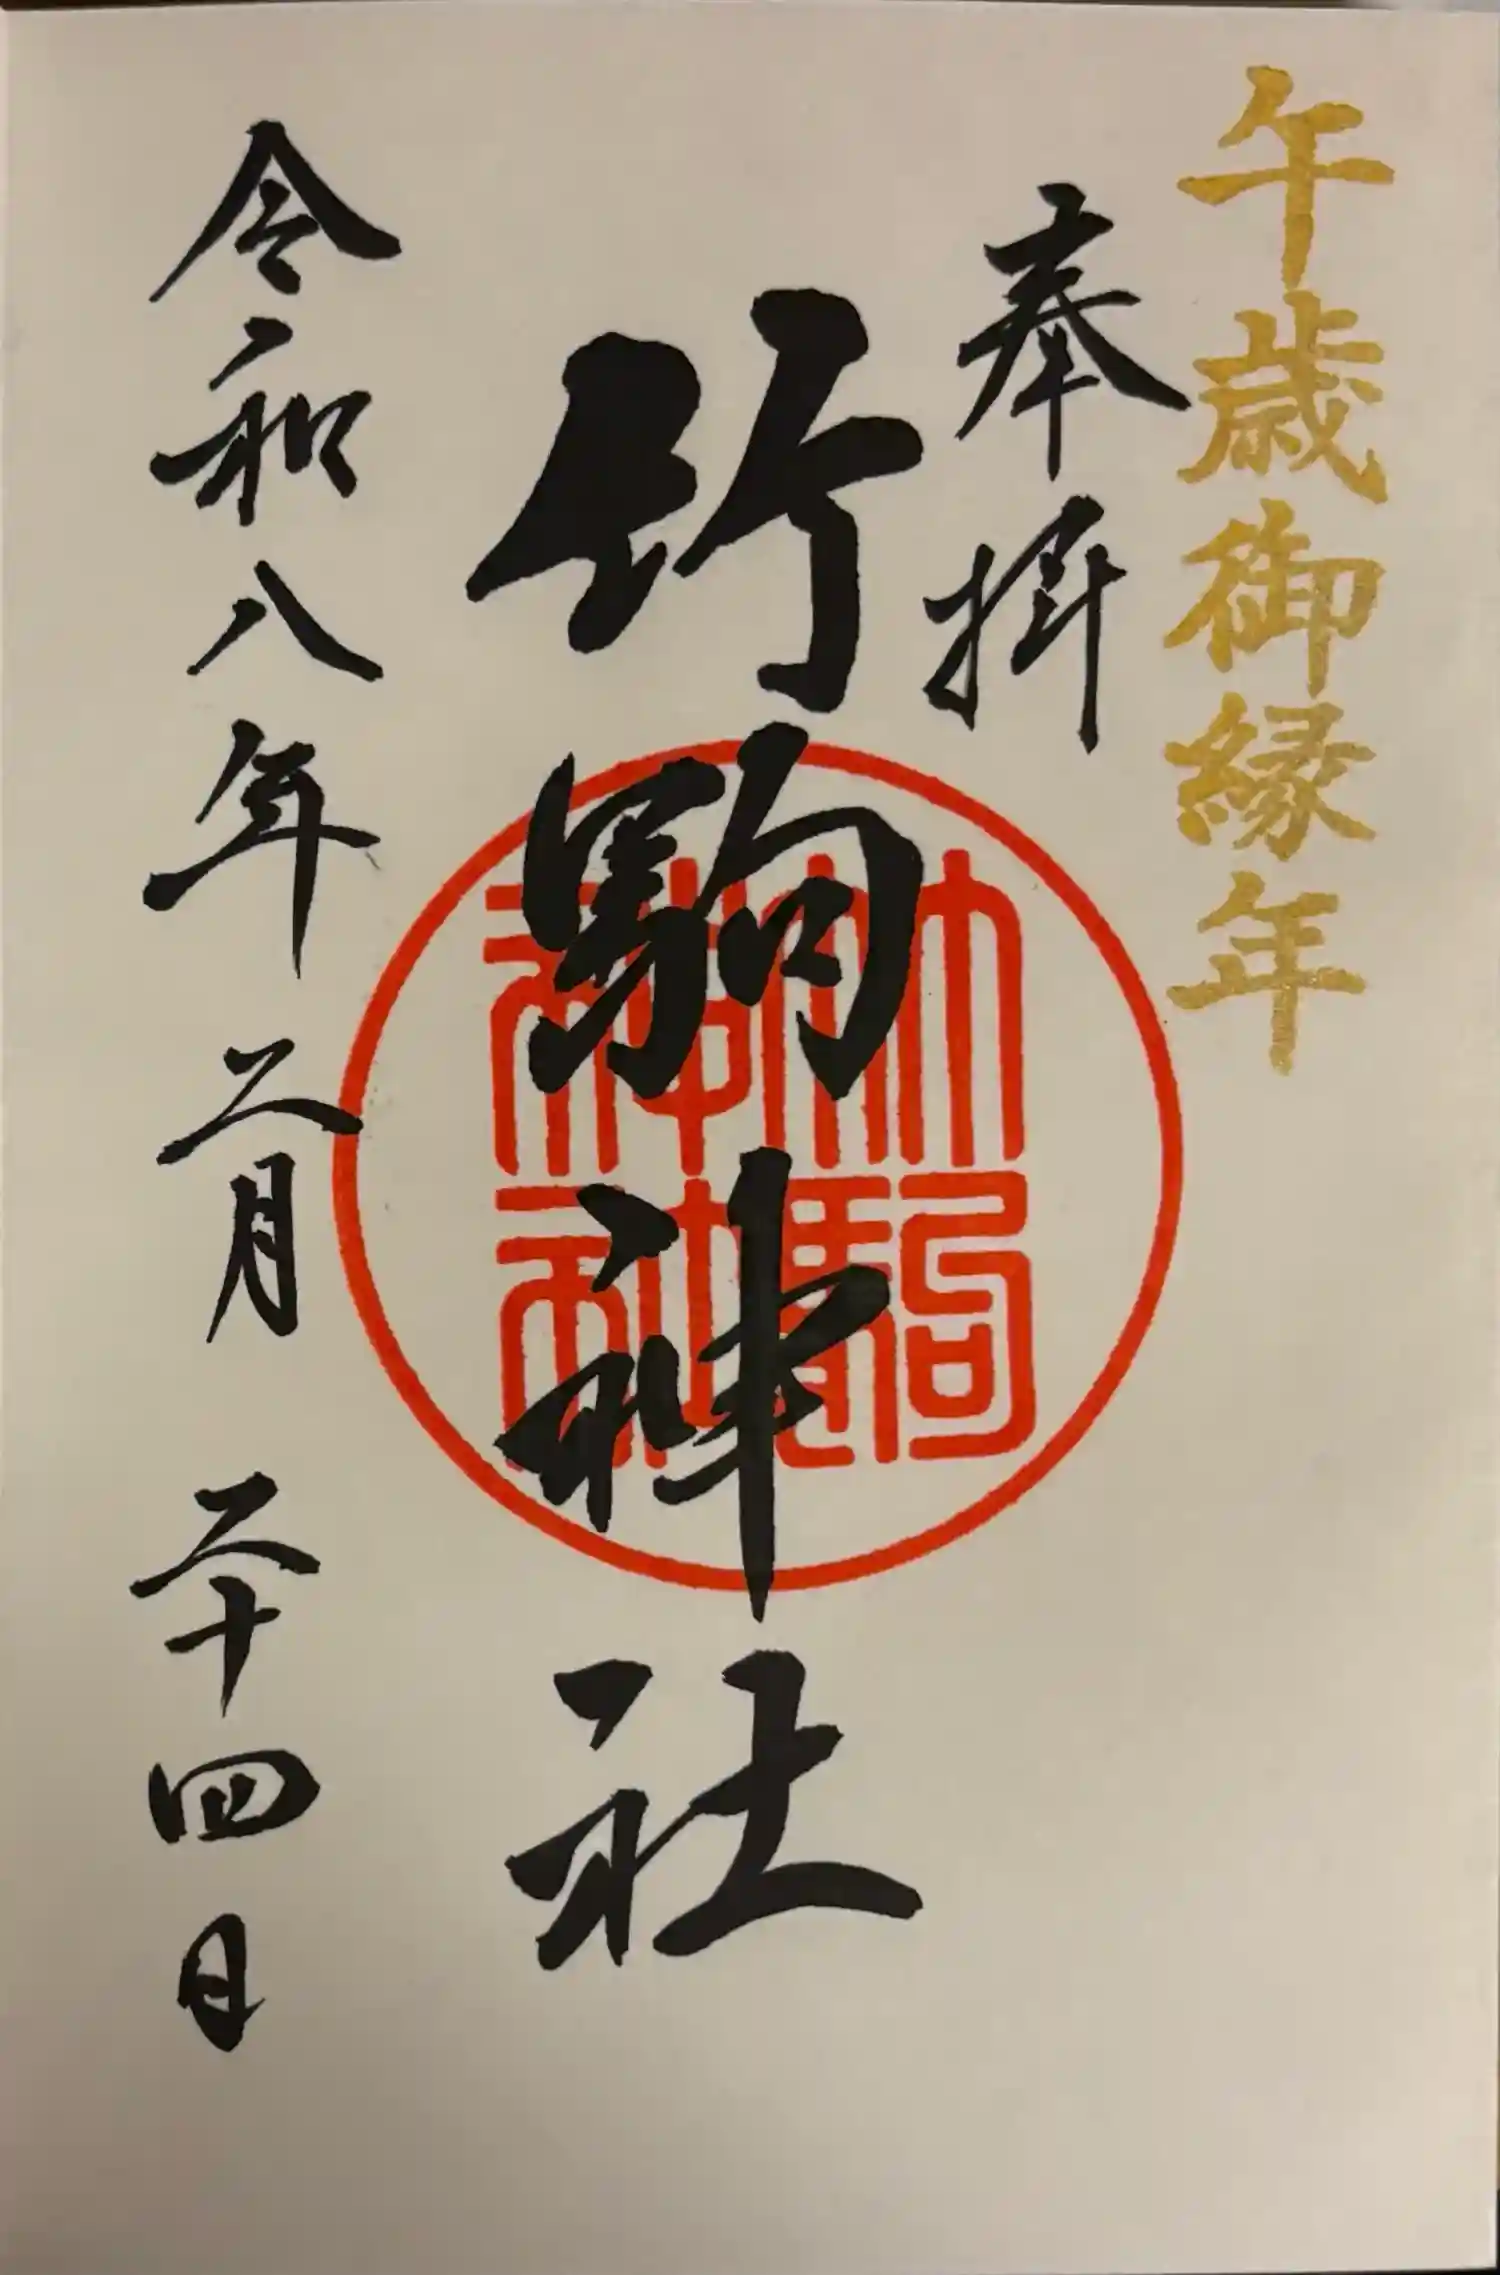 午歳御縁年
奉拝
竹駒神社
竹駒
神社
令和八年二月二十四日